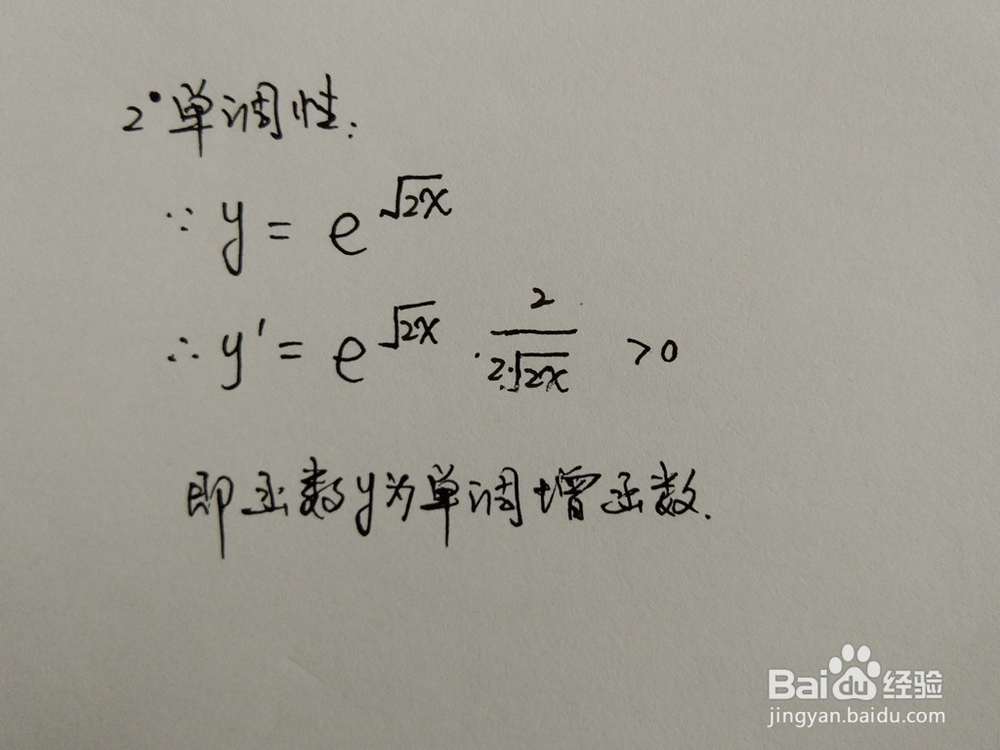 2°单调性:
∵ y = e^√2x
∴ y' = e^√2x · 2/(2·√2x) >0
即函数y为单调增函数.
Baidu经验
jingyan.baidu.com